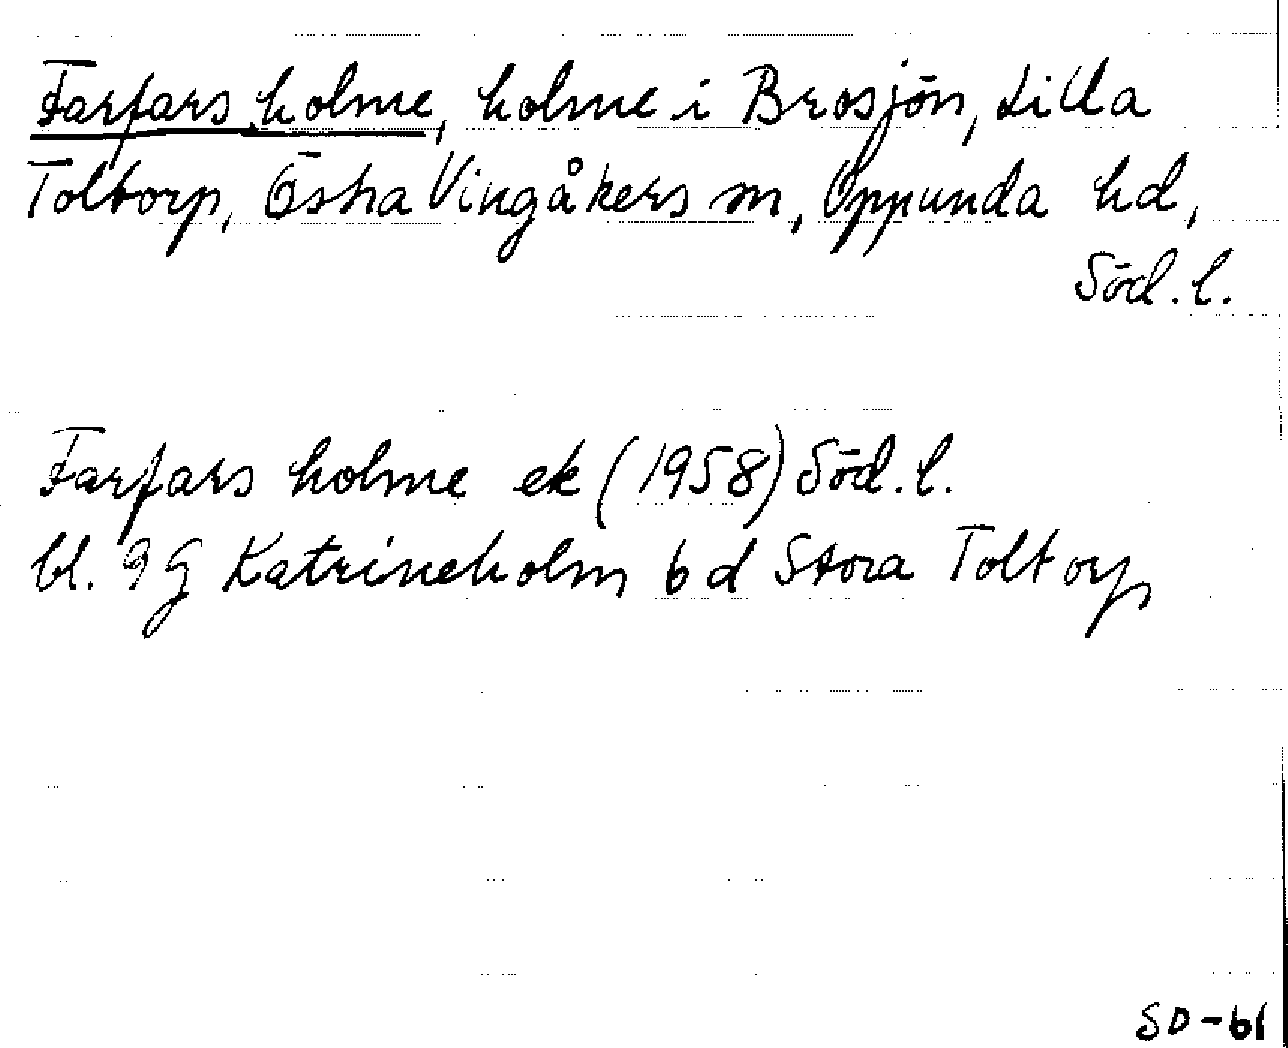 Farfars holme, holme i Brosjön, Lilla
Toltorp, Östra Vingåkers sn, Oppunda hd,
Söd. l.
Farfars holme ek (1958) Söd. l.
bl. 9 G Katrineholm 6 d Stora Toltorp
SD-bl